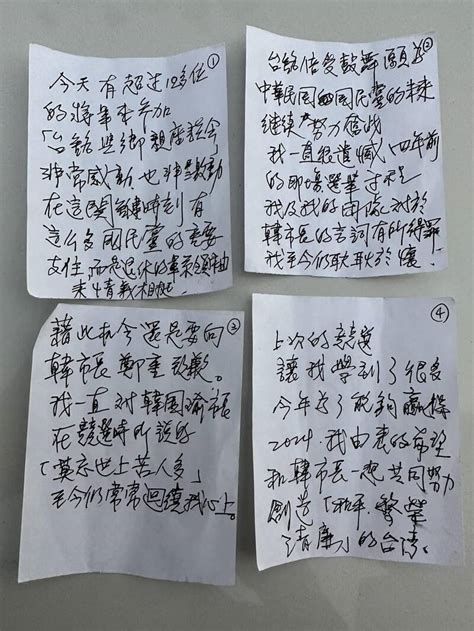 ①
今天有超过120多位
的將軍來參加
「台銘與鄉親座談会」
非常感動也非常激動
在這關鍵時刻有
這么多國民黨的重要
支柱,而是退休的軍系領袖
来情義相挺
②
台銘倍受鼓舞願為
中華民國和國民黨的未来
继续努力奮战
我一直很遺憾,四年前
的那場選举过程
我及我的团隊我於
韓市長的言詞有所得罪
我至今仍耿耿於懷!
③
藉此机会還是要向
韓市長鄭重致歉。
我一直对韓國瑜市長
在競選時所說的
「莫忘世上苦人多」
至今仍常常迴繞我心上。
④
上次的競選
讓我學到了很多
今年為了能夠贏得
2024,我由衷的希望
和韓市長一起共同努力
創造「和平、繁榮
清廉」的台湾。